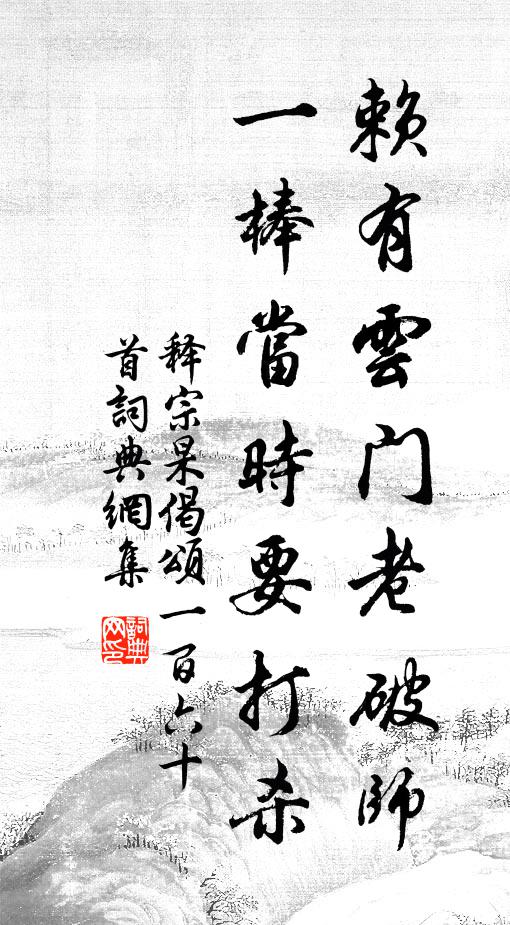 赖有雲门老破師
一棒當時要打杀
释宗杲偈頌一百六十
首詞典網集
詞典
网印